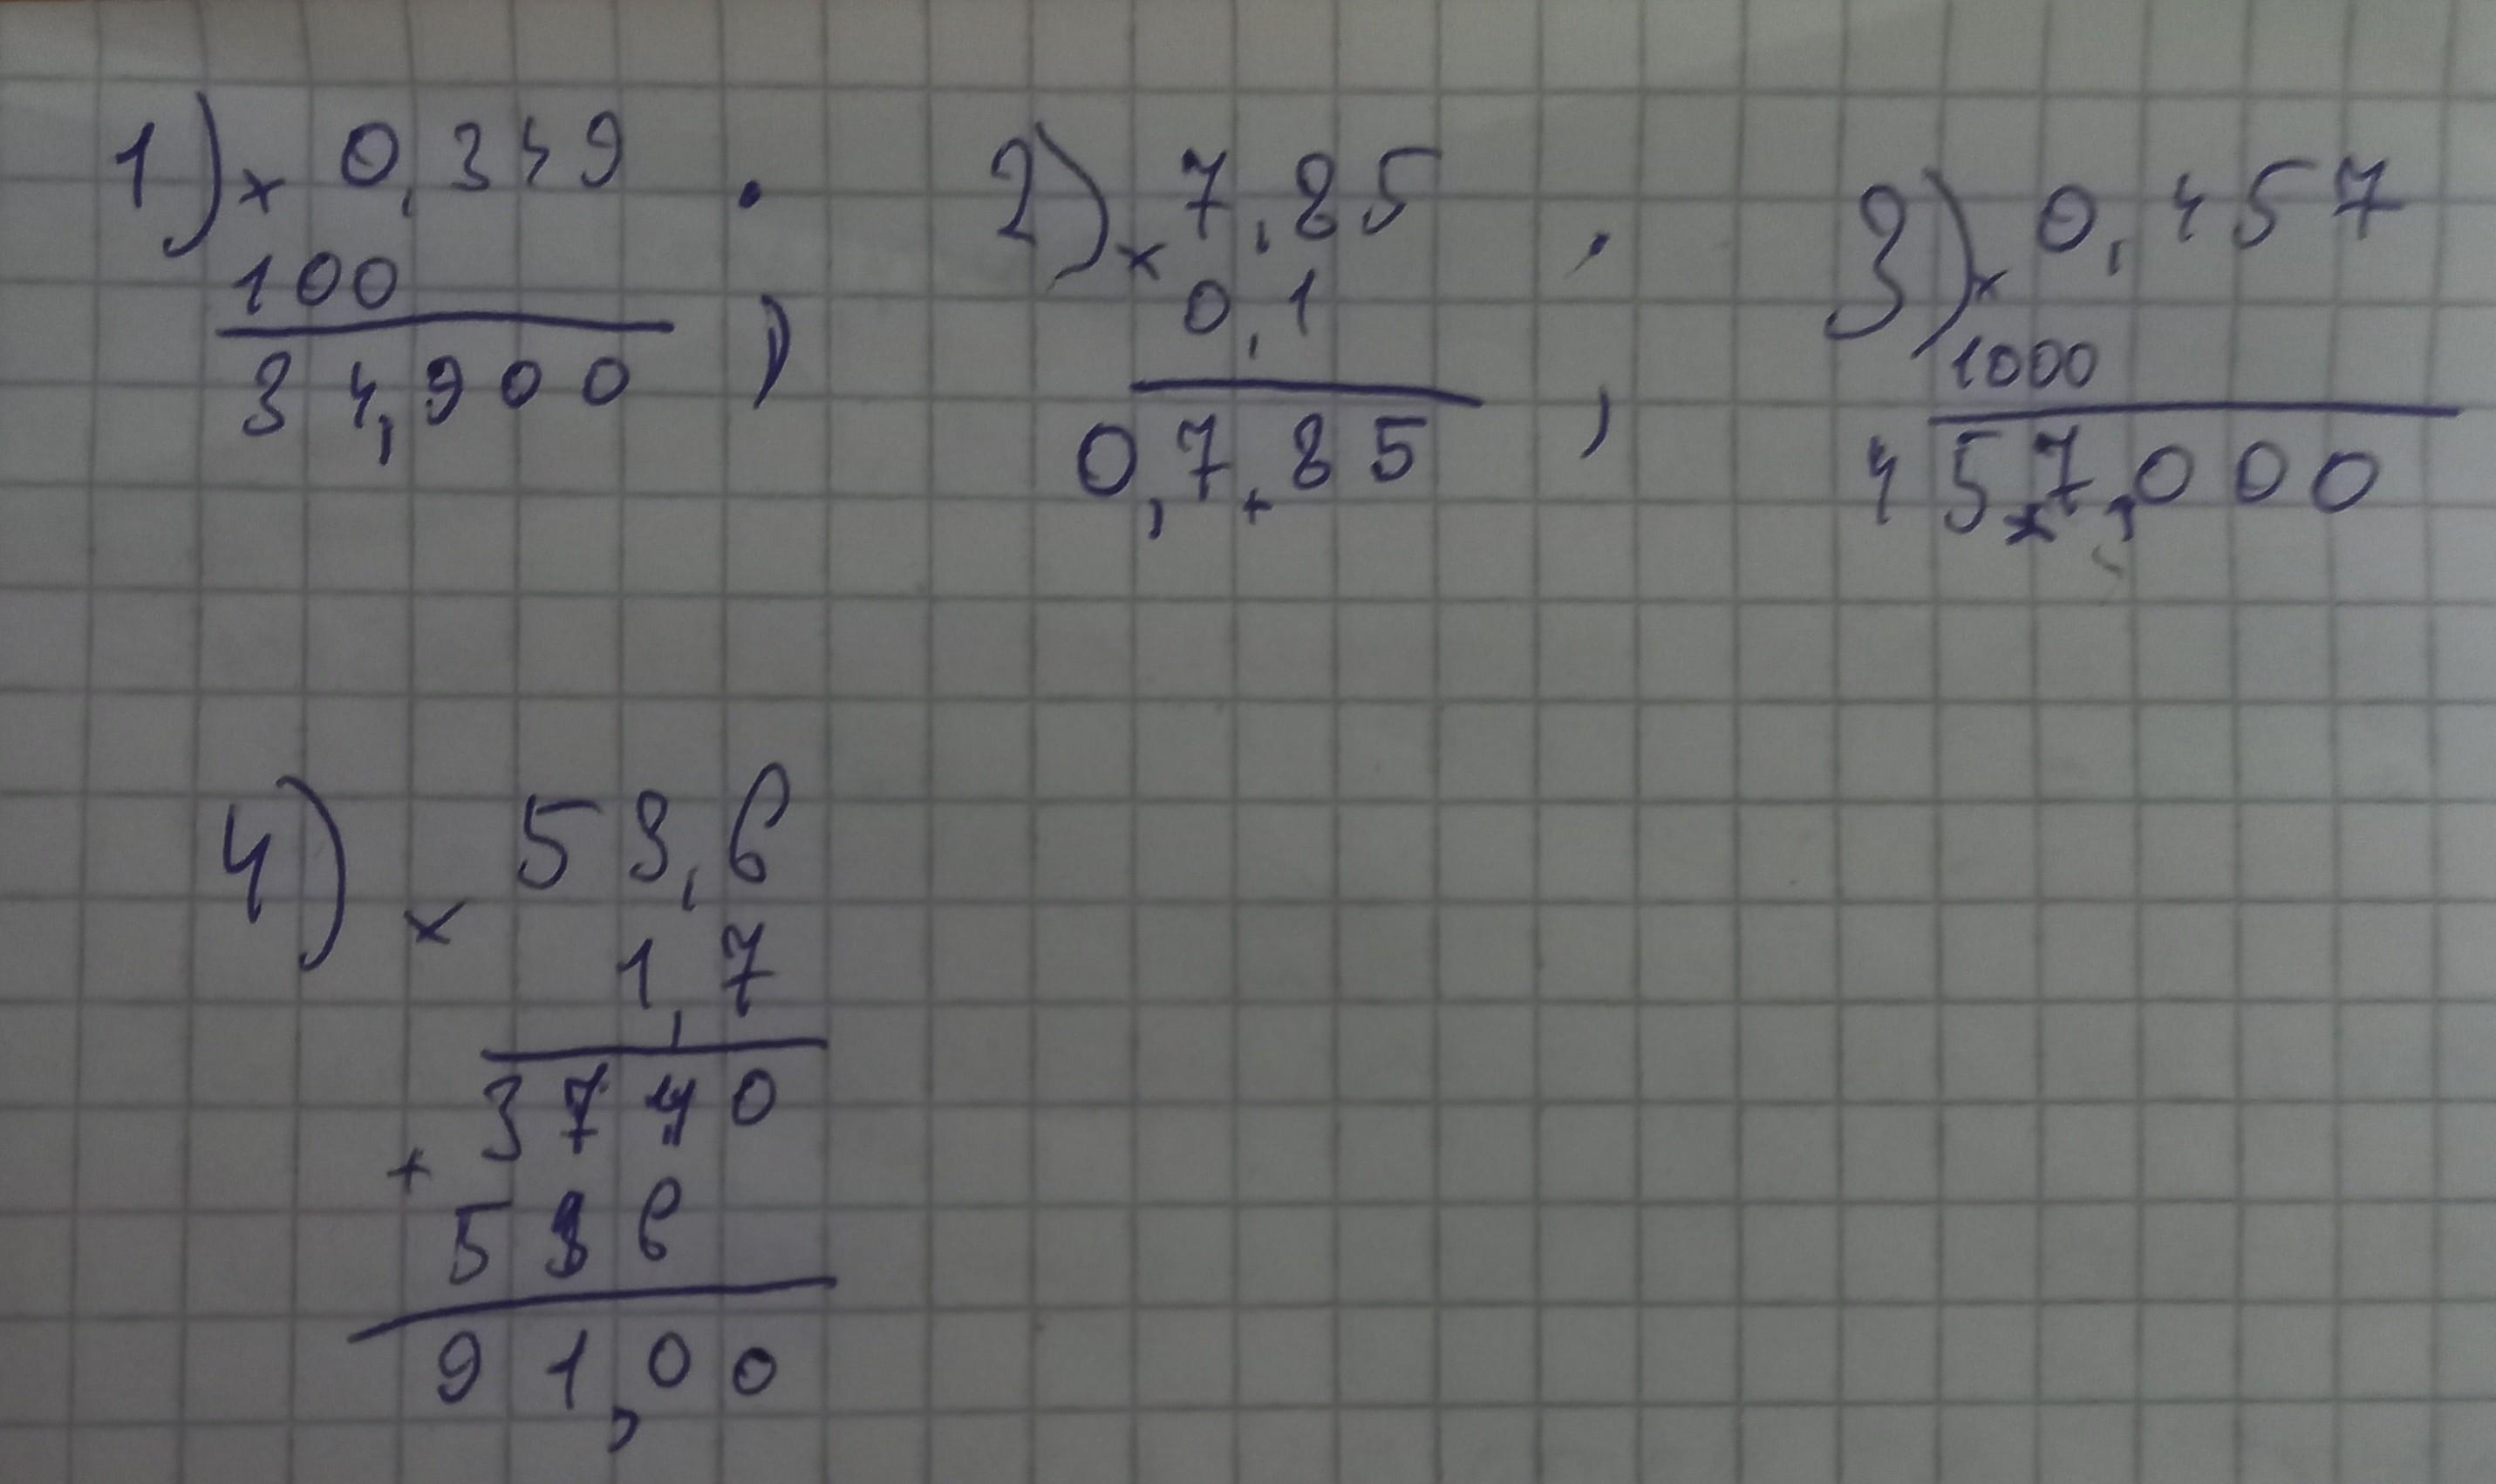 1) × 0,349 .
100
34,900 ,
2) × 7,85 .
0,1
0,785 ,
3) × 0,457
1000
457,000
4) × 53,6
1,7
3740
+
536
91,00